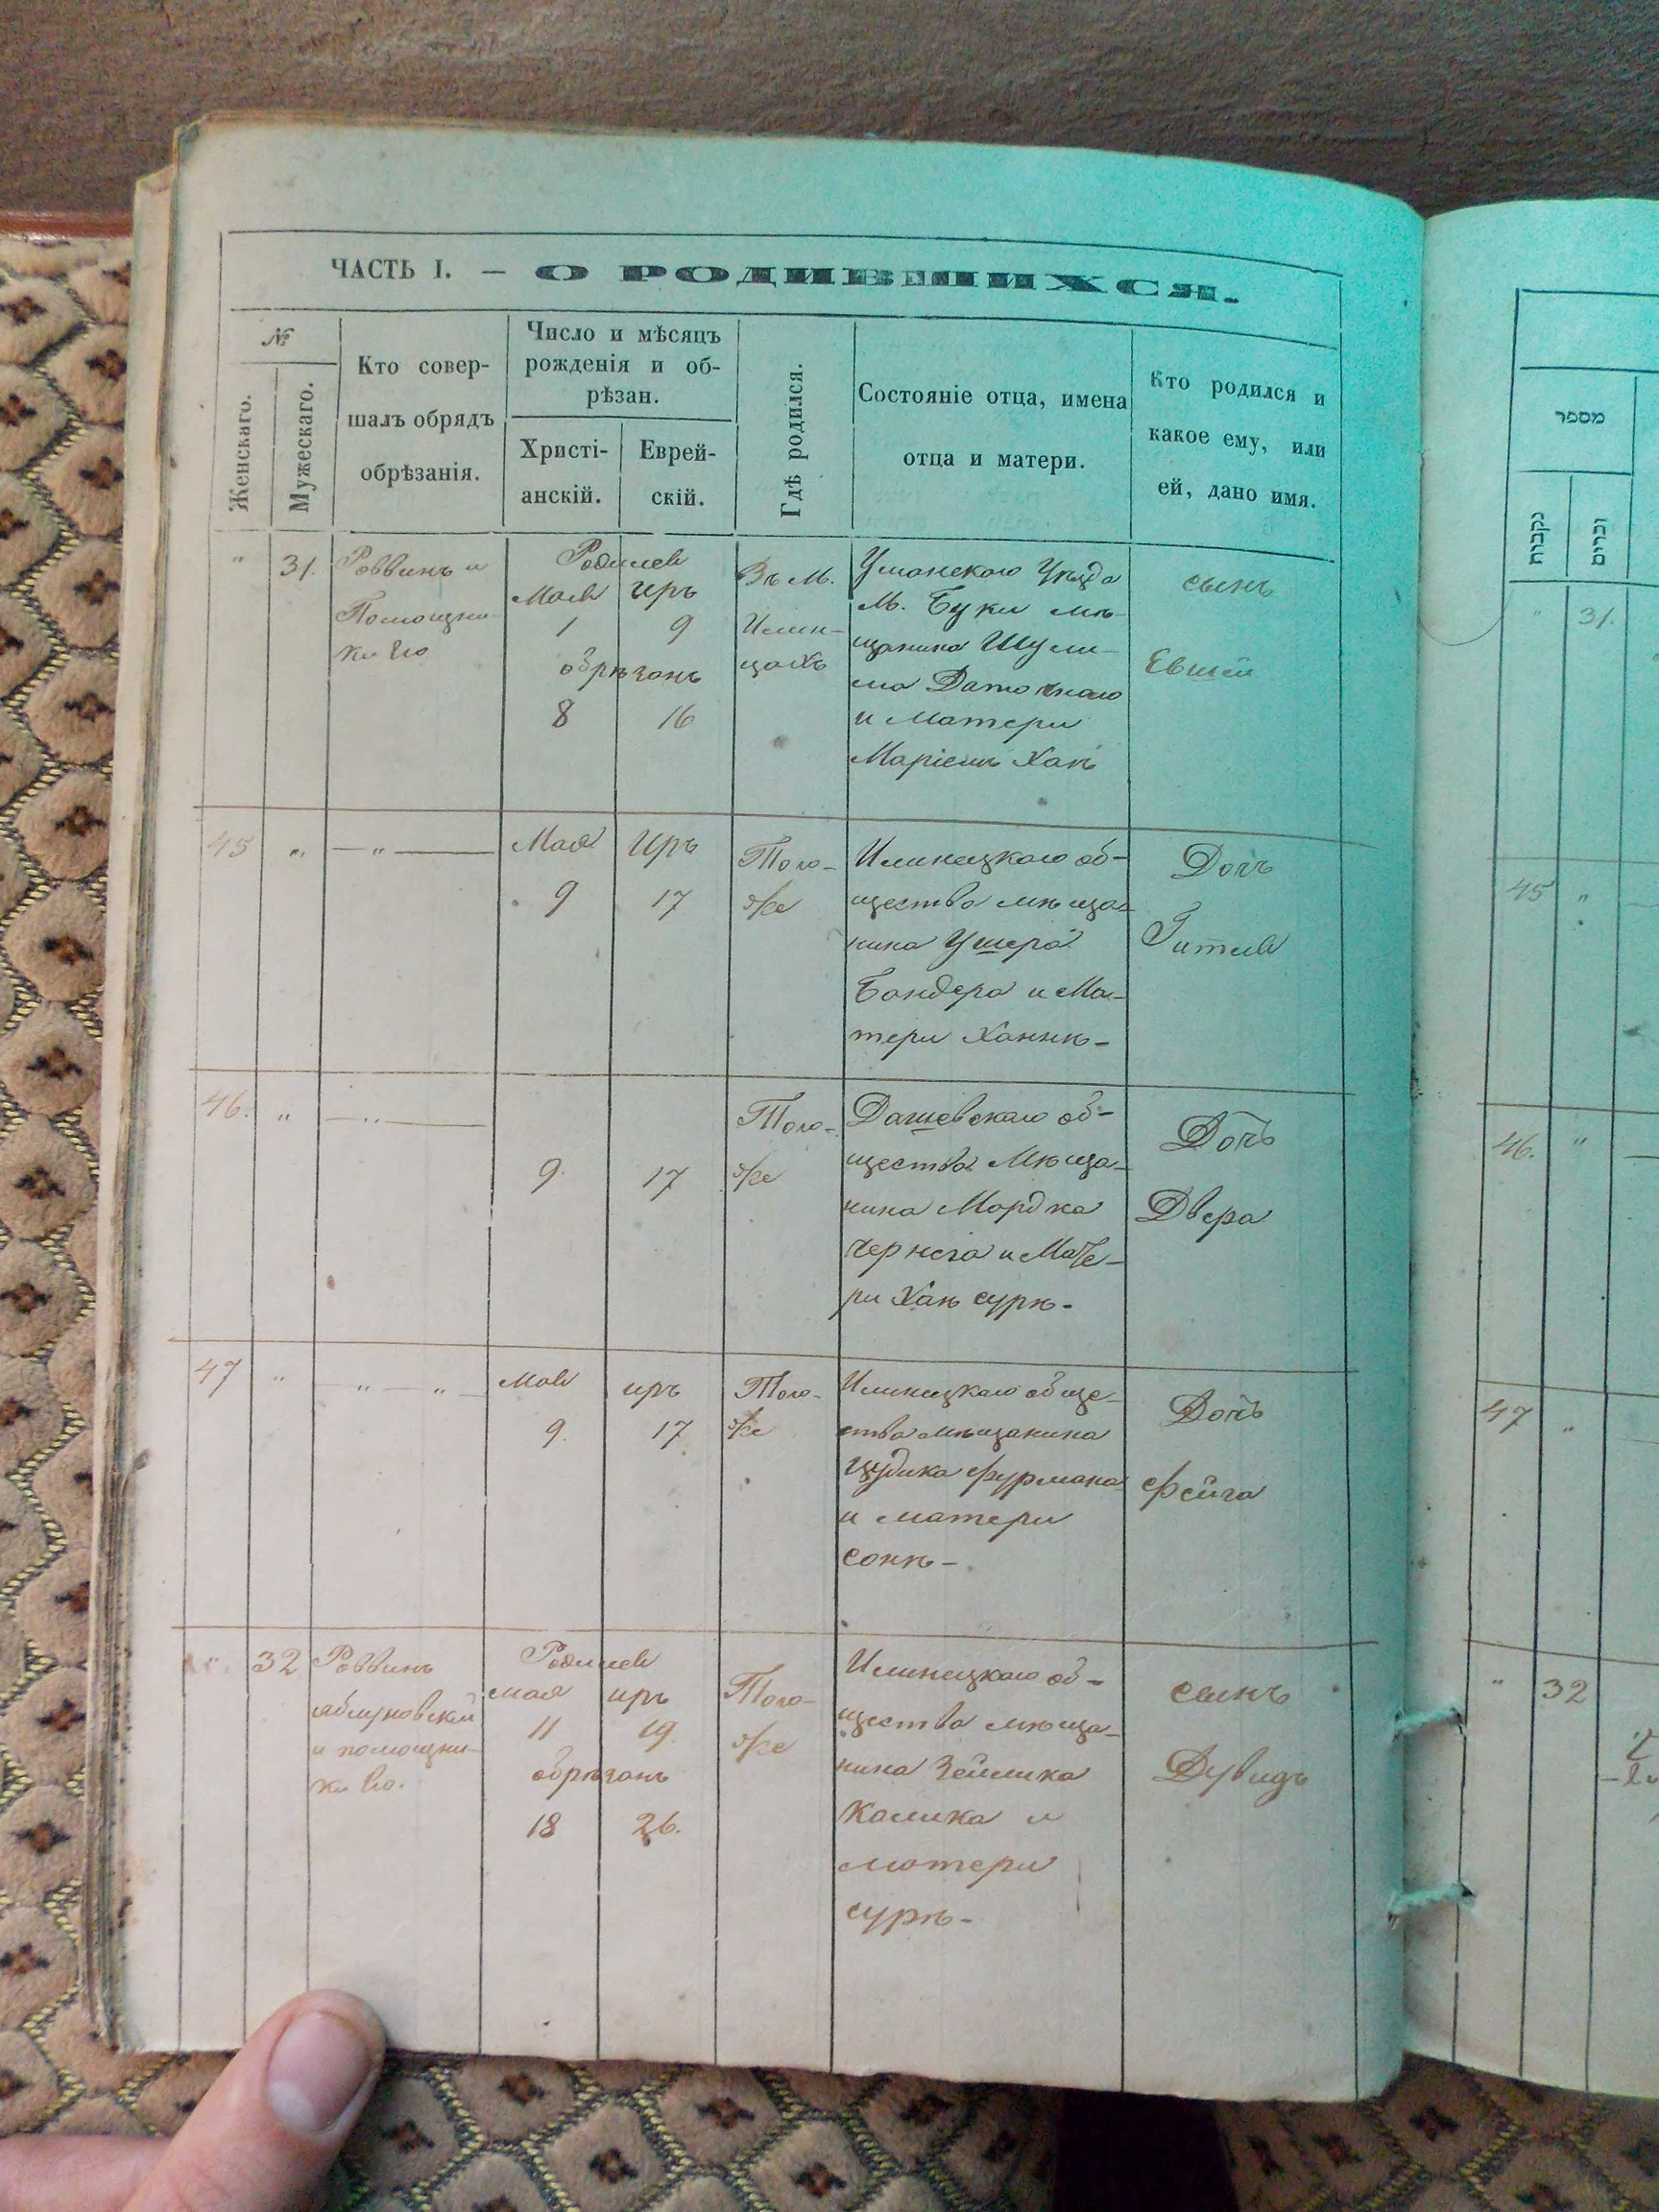 ЧАСТЬ I. — О РОДИВШИХСЯ.
№
Женскаго.
Мужескаго.
Кто совер-
шалъ обрядъ
обрѣзанія.
Число и мѣсяцъ
рожденія и об-
рѣзан.
Христі-
анскій.
Еврей-
скій.
Гдѣ родился.
Состояніе отца, имена
отца и матери.
Кто родился и
какое ему, или
ей, дано имя.
" 31.
Раввинъ и
Помощни-
ки Его
Родился
Мая Иръ
1 9
обрѣзанъ
8 16
Въ М.
Илин-
цахъ
Уманскаго Уѣзда
М. Буки мѣ-
щанина Шули-
ма
и Матери
Маріемъ Хаѣ
сынъ
Евшей
45 " — " —
Мая Иръ
9 17
Того-
же
Илинецкаго об-
щества мѣща-
нина Ушера
Бандера и Ма-
тери Ханнѣ-
Дочь
Гитля
46. " — " —
9. 17
Того-
же
Дашевскаго об-
щества Мѣща-
нина Мордка
Чернега и Мате-
ри Хаѣ сурѣ-
Дочь
Двера
47 " — " — " —
Мая иръ
9. 17
Того-
же
Илинецкаго обще-
ства мѣщанина
Цудика Фурмана
и матери
сонѣ-
Дочь
Фейга
" 32
Раввинъ
Яблуновскій
и помощни-
ки Его.
Родился
мая иръ
11 19.
обрѣзанъ
18 26.
Того-
же
Илинецкаго об-
щества мѣща-
нина Зейлика
Колика и
матери
сурѣ-
сынъ
Дувидъ
מספר
נקבות
זכרים
" 31.
45 "
46. "
47 "
" 32